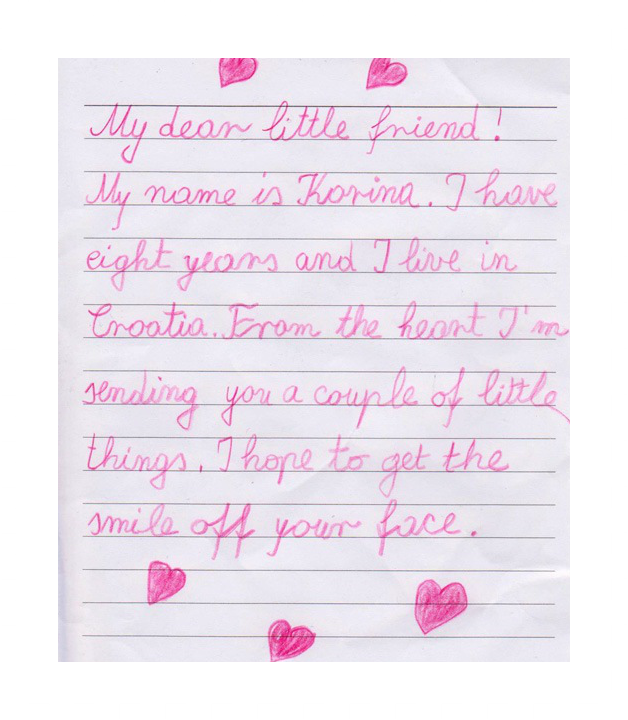 My dear little friend!
My name is Korina. I have
eight years and I live in
Croatia. From the heart I'm
sending you a couple of little
things. I hope to get the
smile off your face.